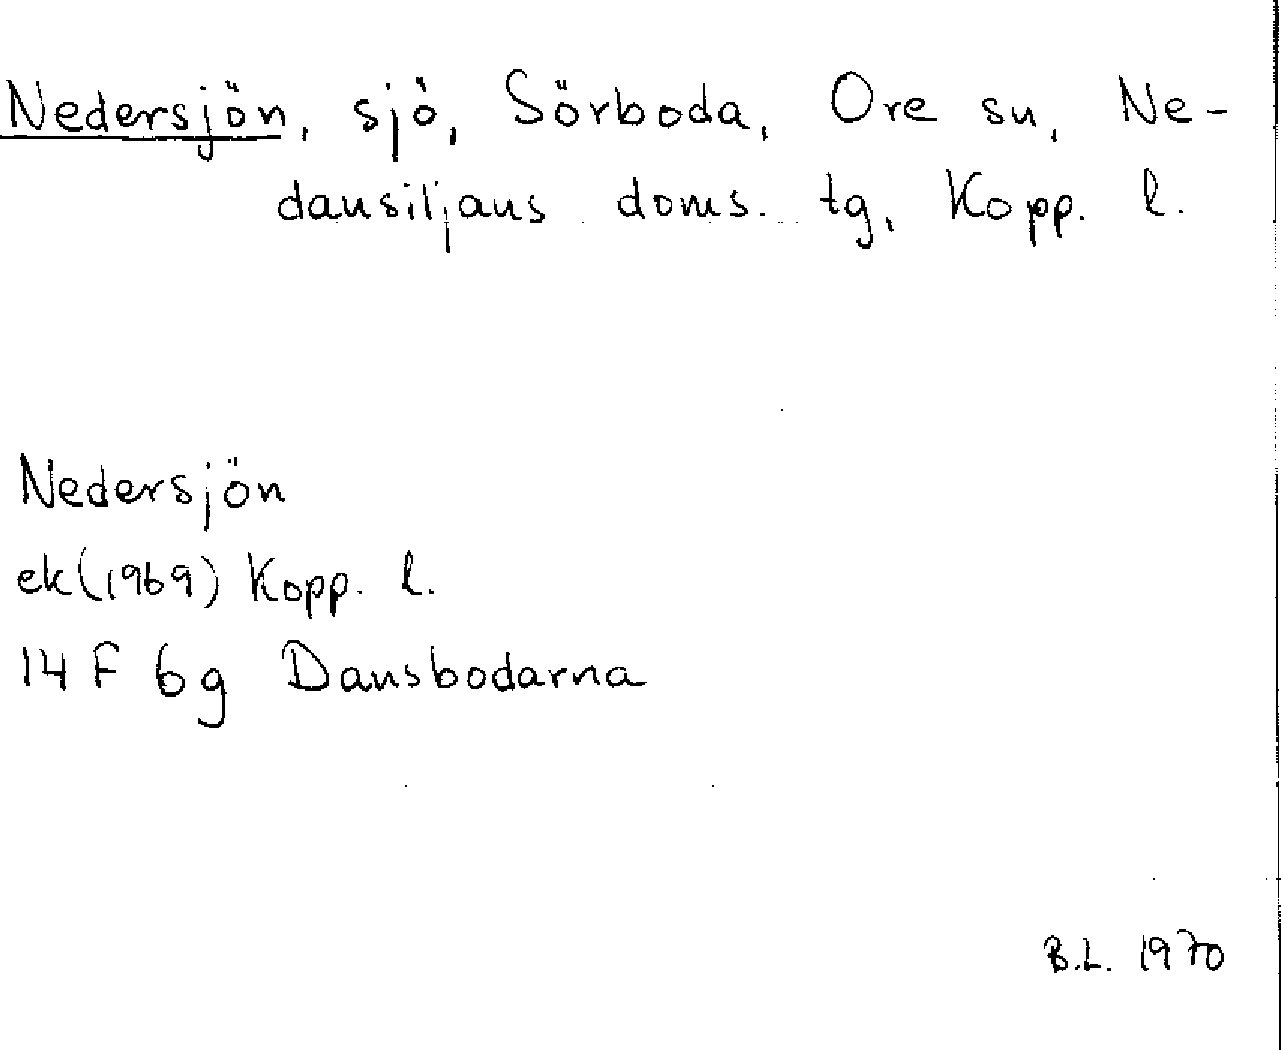 Nedersjön, sjö, Sörboda, Ore sn, Ne-
dansiljans doms. tg, Kopp. l.
Nedersjön
ek(1969) Kopp. l.
14 F 6g Dansbodarna
B.L. 1970